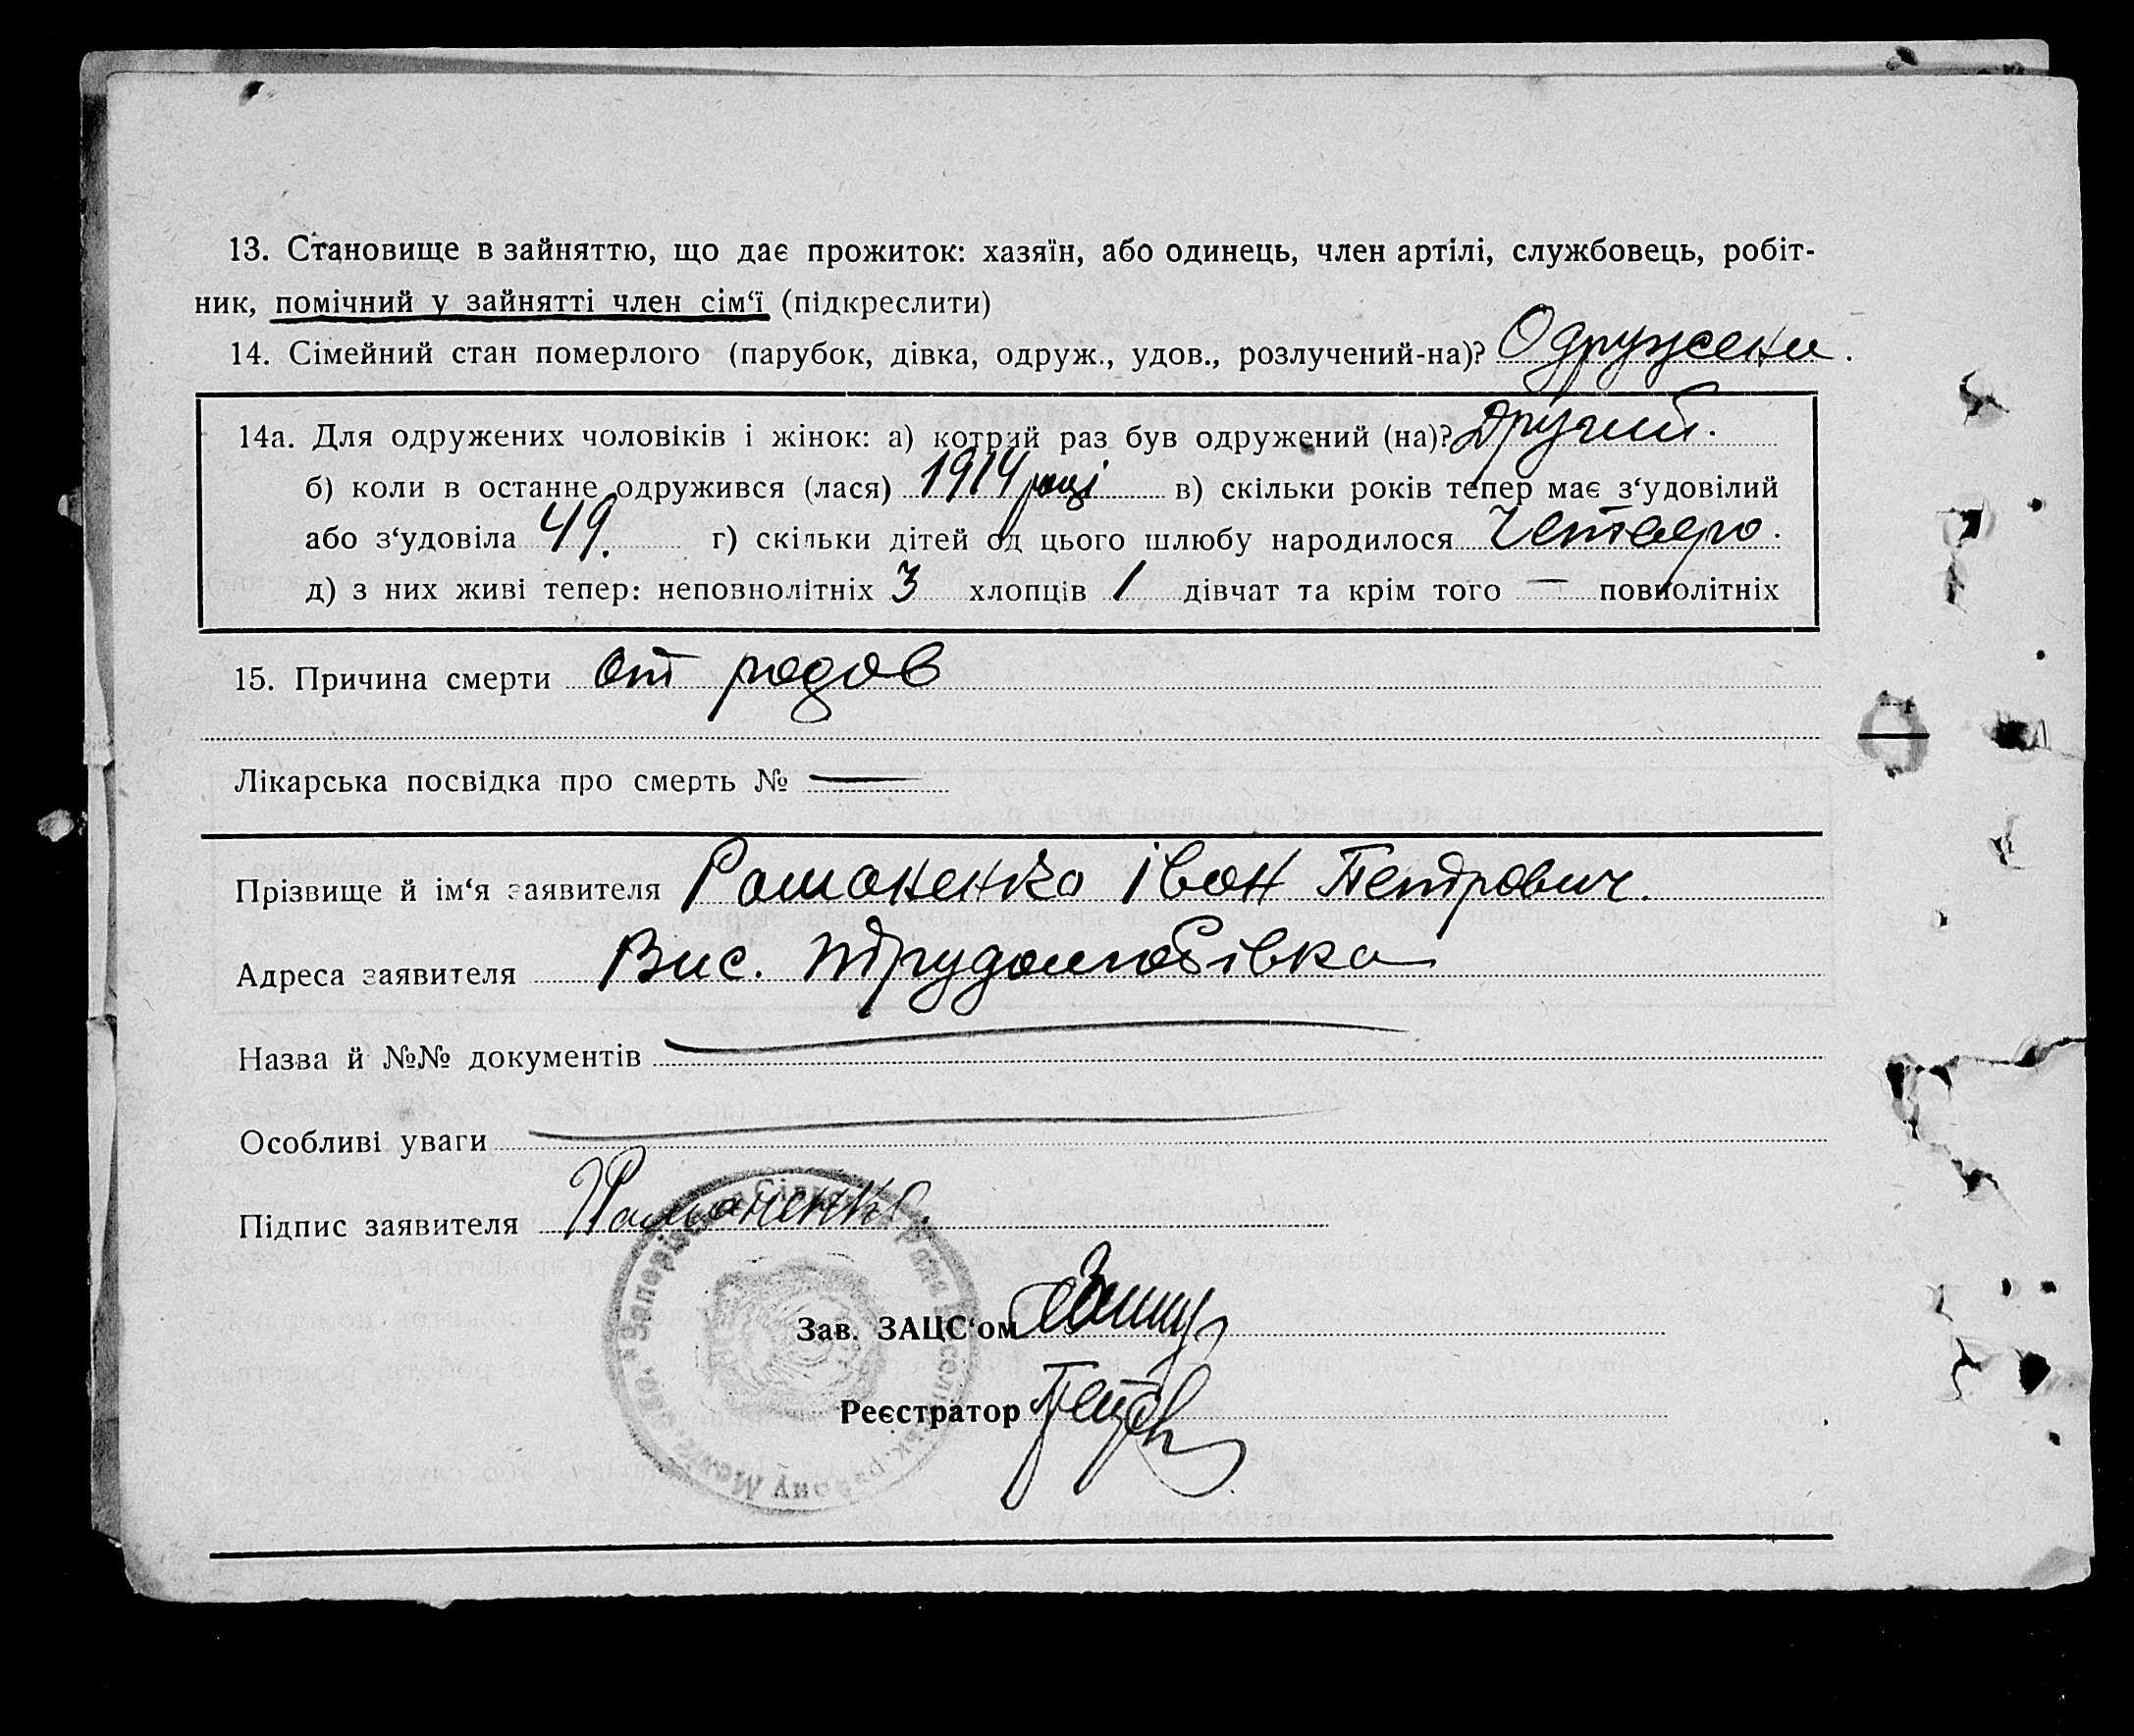 13. Становище в зайняттю, що дає прожиток: хазяїн, або одинець, член артілі, службовець, робіт-
ник, помічний у зайнятті член сім‘ї (підкреслити)
14. Сімейний стан померлого (парубок, дівка, одруж., удов., розлучений-на)? Одружени.
14а. Для одружених чоловіків і жінок: а) котрий раз був одружений (на)? Другий.
б) коли в останнє одружився (лася) 1914 році в) скільки років тепер має з‘удовілий
або з‘удовіла 49. г) скільки дітей од цього шлюбу народилося Четверо.
д) з них живі тепер: неповнолітніх 3 хлопців 1 дівчат та крім того — повнолітніх
15. Причина смерти от родов
Лікарська посвідка про смерть № —
Прізвище й ім‘я заявителя Романенко Іван Петрович.
Адреса заявителя Вис. Трудолюбівка
Назва й №№ документів
Особливі уваги
Підпис заявителя Романенко.
Зав. ЗАЦС‘ом
Реєстратор